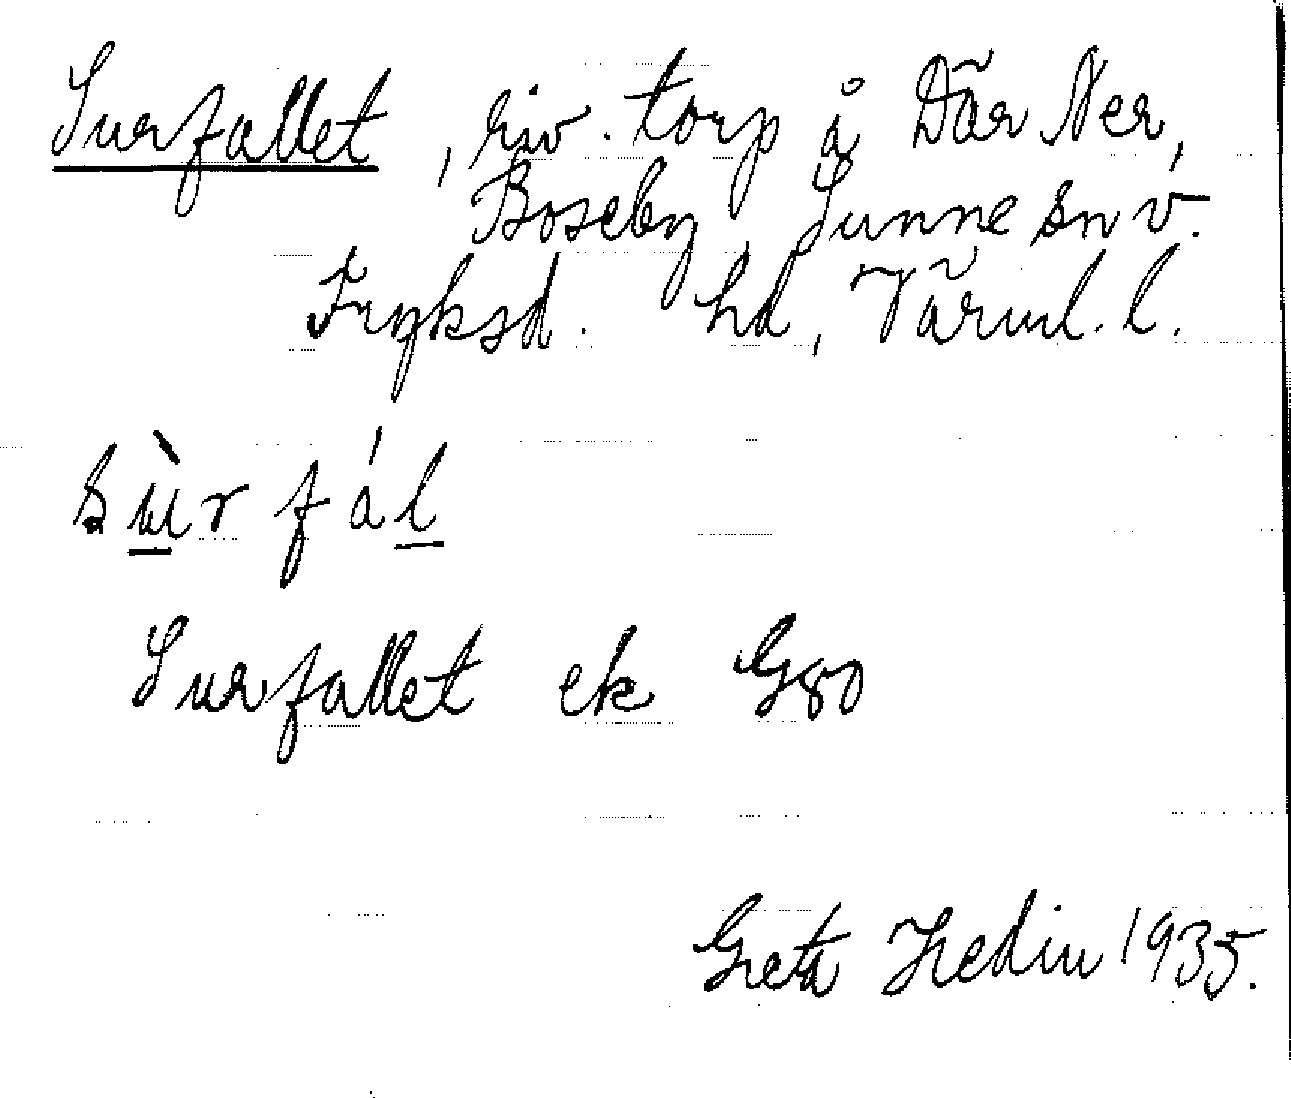 Surfallet, riv. torp å Där Ner,
Boseby, Sunne sn v.
Fryksd. hd, Värml. l.
sùrfál
Surfallet ek G80
Greta Hedin 1935.